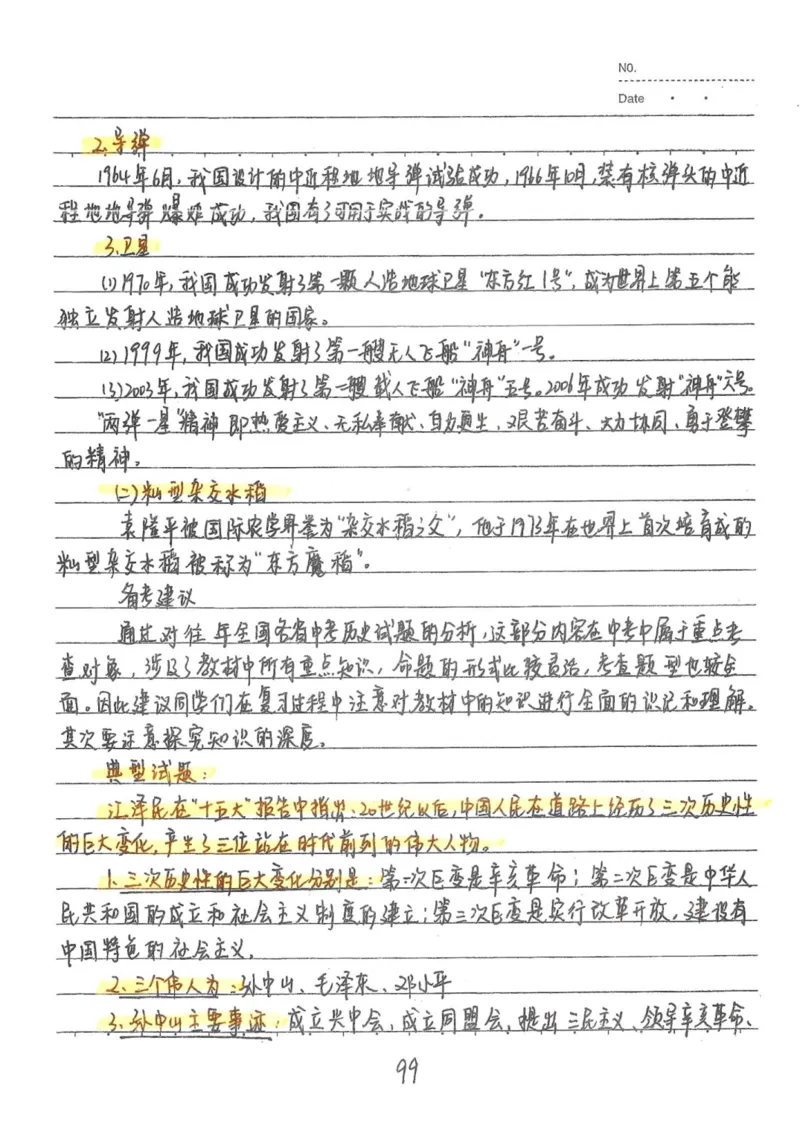 NO.
Date
2.导弹
1964年6月，我国设计的中近程地地导弹试验成功，1966年10月，禁有核弹头的中近
程地地导弹爆炸成功，我国有了可用于实战的导弹。
3.卫星
(1)1970年，我国成功发射了第一颗人造地球卫星“东方红1号”，成为世界上第五个能
独立发射人造地球卫星的国家。
(2)1999年，我国成功发射了第一艘无人飞船“神舟”一号。
(3)2003年，我国成功发射了第一艘载人飞船“神舟”五号。2006年成功发射“神舟”六号。
“两弹一星”精神即热爱主义、无私奉献、自力更生，艰苦奋斗、大力协同、勇于登攀
的精神。
(二)籼型杂交水稻
袁隆平被国际农学界誉为“杂交水稻之父”，他于1973年在世界上首次培育成的
籼型杂交水稻被称为“东方魔稻”。
备考建议
通过对往年全国各省中考历史试题的分析，这部分内容在中考中属于重点考
查对象，涉及了教材中所有重点知识，命题的形式比较灵活，考查题型也较全
面。因此建议同学们在复习过程中注意对教材中的知识进行全面的识记和理解。
其次要注意探究知识的深度。
典型试题：
江泽民在“十五大”报告中指出：20世纪以后，中国人民在道路上经历了三次历史性
的巨大变化，产生了三位站在时代前列的伟大人物。
1.三次历史性的巨大变化分别是：第一次巨变是辛亥革命；第二次巨变是中华人
民共和国的成立和社会主义制度的建立；第三次巨变是实行改革开放，建设有
中国特色的社会主义。
2.三个伟人为：孙中山、毛泽东、邓小平
3.孙中山主要事迹：成立兴中会，成立同盟会，提出三民主义、领导辛亥革命、
99